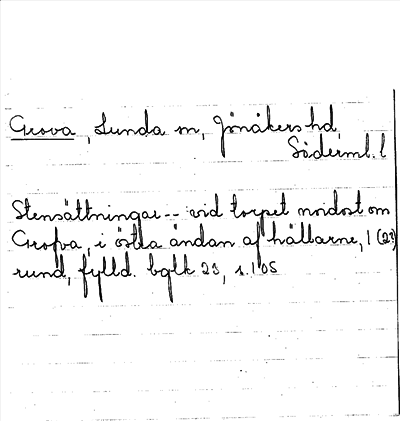 Grova, Lunda sn, Jönåkers hd,
Söderml. l
Stensättningar -- vid torpet nordost om
Grofva, i östra ändan af hällarne, 1 (2?)
rund, fylld. bglk 23, s. 105